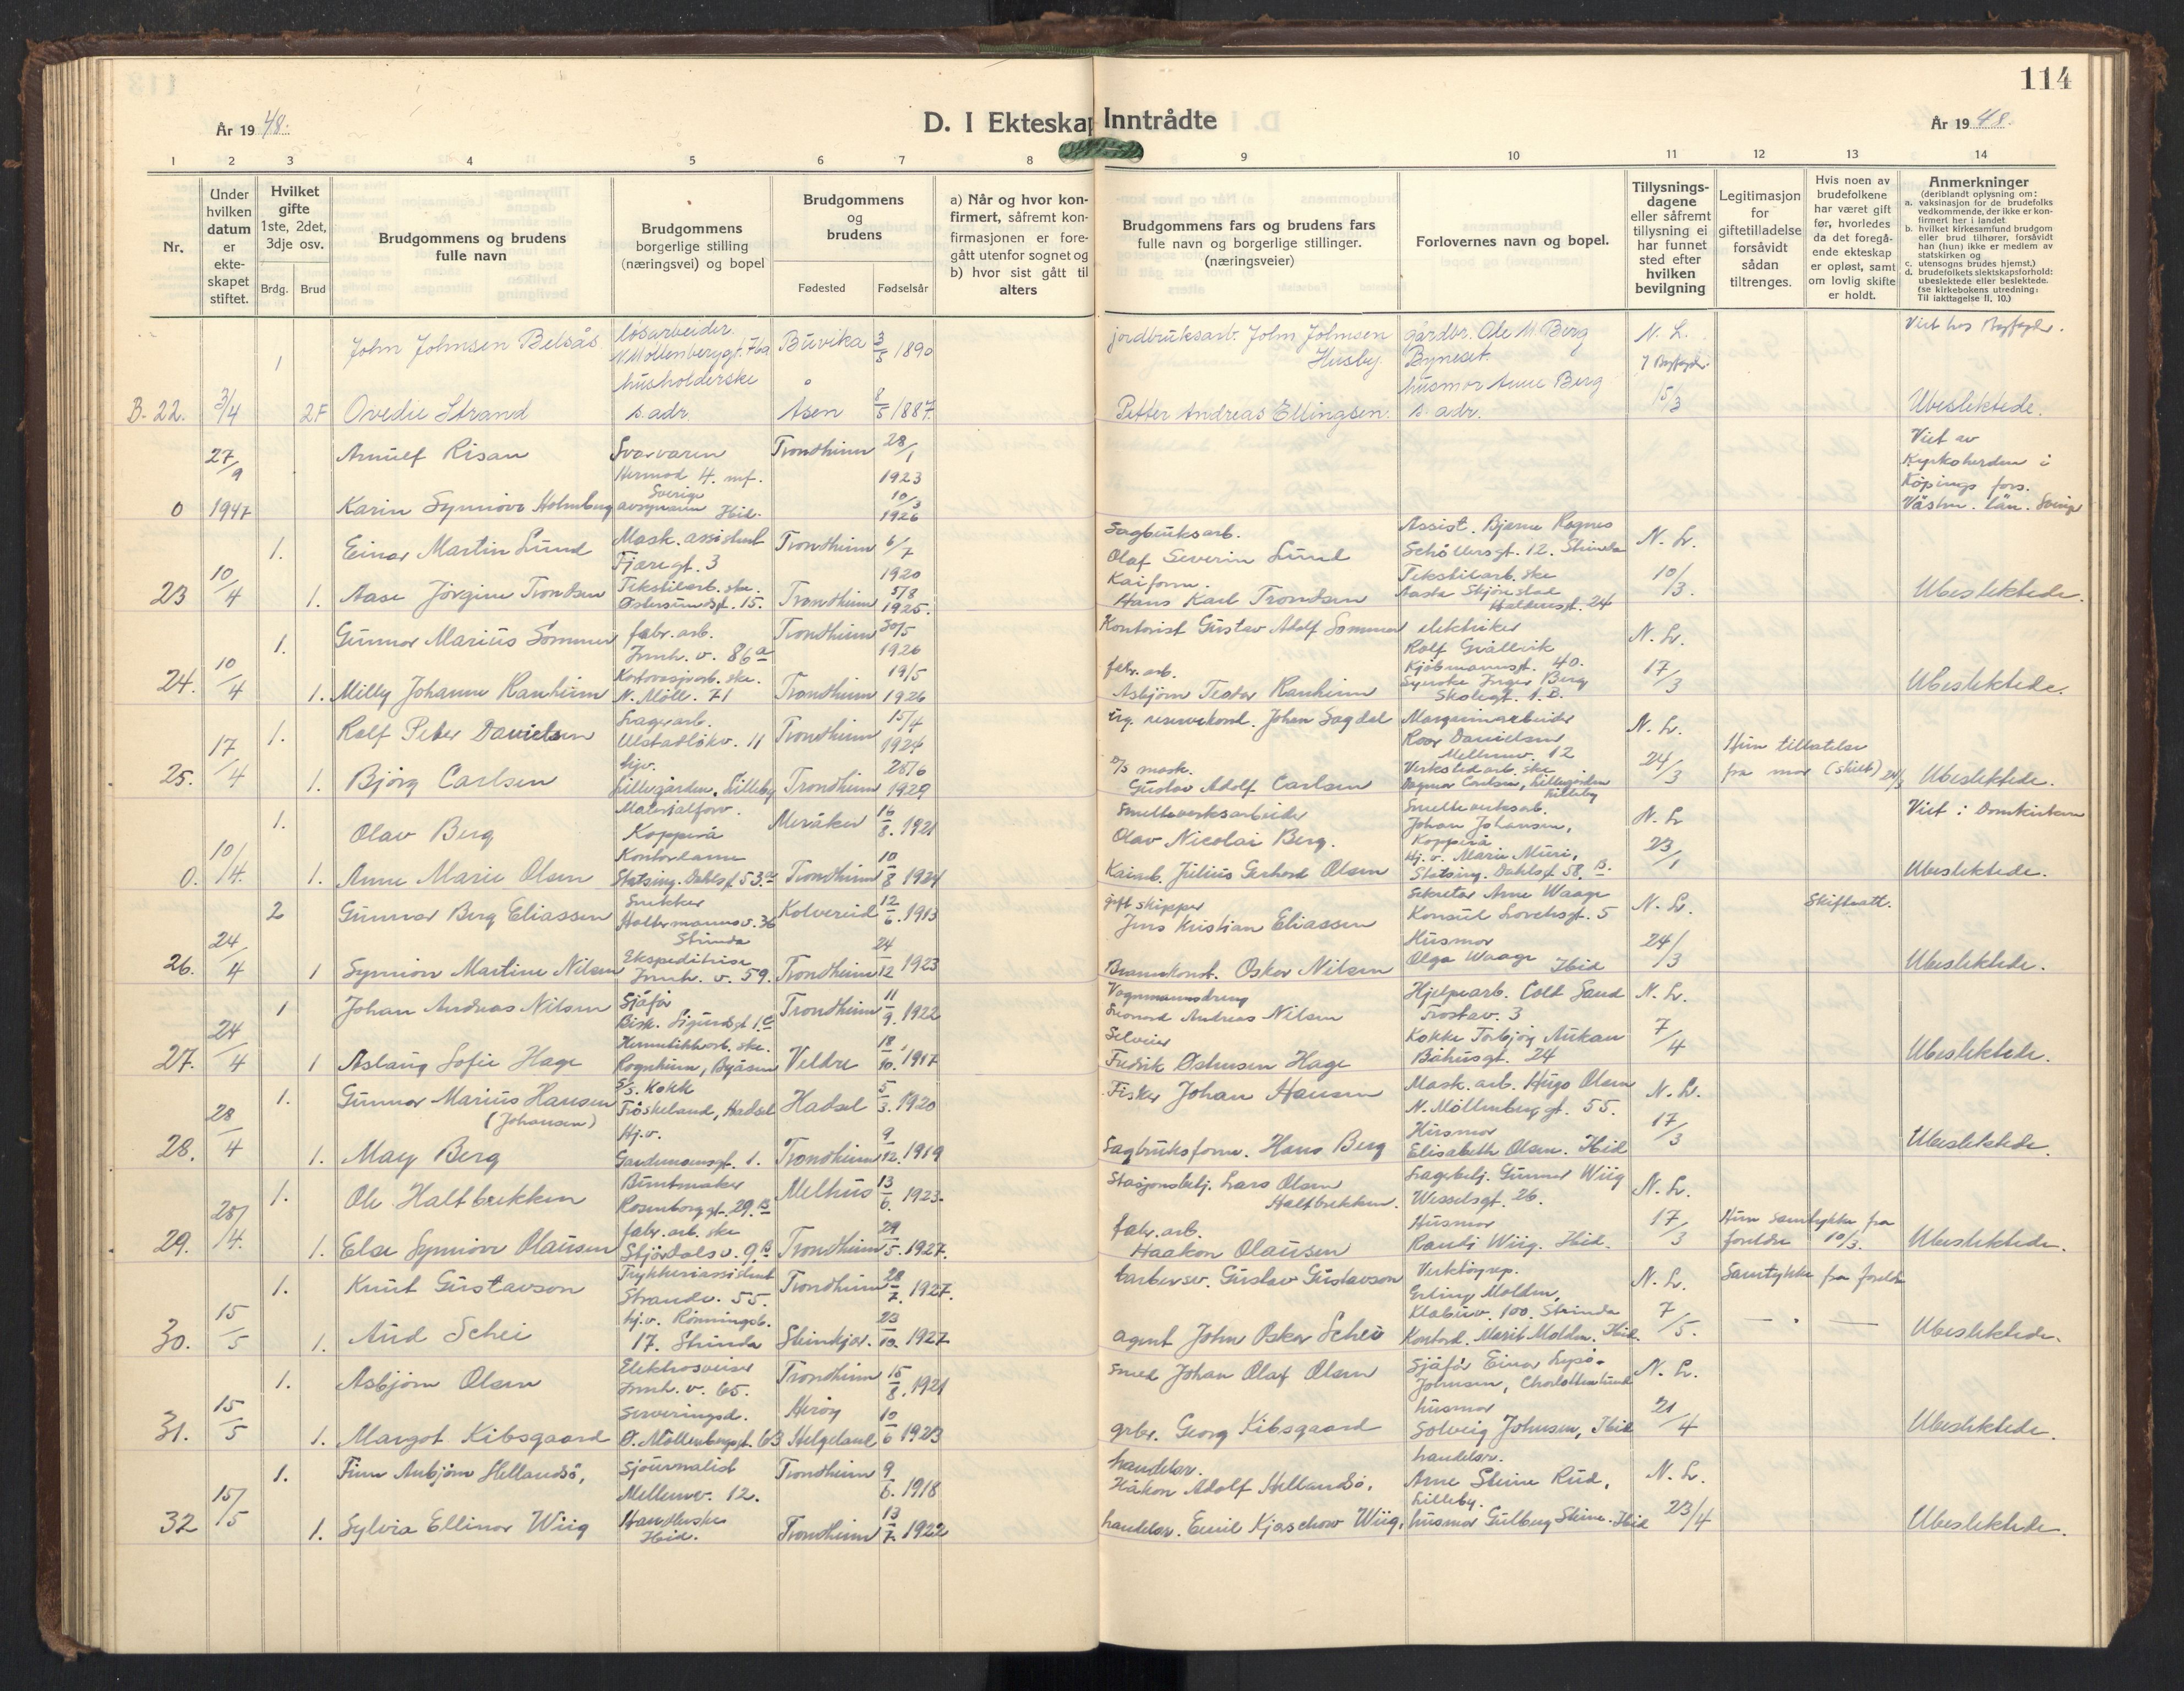 114
År 1948.
D. I Ekteskap Inntrådte
År 1948.
1 2 3 4 5 6 7 8 9 10 11 12 13 14
Nr.
Under hvilken datum er ekte-skapet stiftet.
Hvilket gifte 1ste, 2det, 3dje osv.
Brdg. Brud
Brudgommens og brudens fulle navn
Brudgommens borgerlige stilling (næringsvei) og bopel
Brudgommens og brudens
Fødested Fødselsår
a) Når og hvor kon-
firmert, såfremt kon-
firmasjonen er fore-
gått utenfor sognet og
b) hvor sist gått til
alters
Brudgommens fars og brudens fars
fulle navn og borgerlige stillinger.
(næringsveier)
Forlovernes navn og bopel.
Tillysnings-
dagene
eller såfremt
tillysning ei
har funnet
sted efter
hvilken
bevilgning
Legitimasjon
for
giftetilladelse
forsåvidt
sådan
tiltrenges.
Hvis noen av
brudefolkene
har været gift
før, hvorledes
da det foregå-
ende ekteskap
er opløst, samt
om lovlig skifte
er holdt.
Anmerkninger
(deriblandt oplysning om:
a. vaksinasjon for de brudefolks
vedkommende, der ikke er kon-
firmert her i landet
b. hvilket kirkesamfund brudgom
eller brud tilhører, forsåvidt
han (hun) ikke er medlem av
statskirken og
c. utensogns brudes hjemst.)
d. brudefolkets slektskapsforhold:
ubeslektede eller beslektede.
(se kirkebokens utredning:
Til iakttagelse II, 10.)
1 John Johnsen Belsås løsarbeider. N. Møllenberggt. 76a Buvika 3/5 1890 jordbruksarb. John Johnsen Husby. gårdbr. Ole M Berg Byneset. N. L. Viet hos Byfogder.
B. 22. 3/4 2F Ovedie Strand husholderske s. adr. Åsen 8/5 1887. Petter Andreas Ellingsen. husmor Anne Berg s. adr. 15/3 Ubeslektede.
27/9 Arnulf Risan Svarvaren Hermod 4. mf. Sverige Trondheim 28/1 1923 Viet av Kyrkoherden i Köpings förs.
0 1947 Karin Synnöve Holmberg Ibid. 10/3 1926 Västm. län. Sverige
1. Einar Martin Lund Mask. assistent Fjæregt. 3 Trondheim 6/7 1920 Sagbruksarb. Olaf Severin Lund Assist. Bjarne Rognes Schøllersgt. 12. Strinda N. L.
23 10/4 1. Aase Jörgine Trondsen Tekstilarb. ske. Østersundsgt. 15. Trondheim 5/8 1925. Kaiform. Hans Karl Trondsen Tekstilarb. ske Aasta Stjörestad Haldensgt. 24 10/3. Ubeslektede.
1. Gunnar Marius Sommer fabr. arb. Innh. v. 86a Trondheim 30/5 1926 Kontorist Gustav Adolf Sommer elektriker Rolf Grällvik Kjöbmannsgt. 40. N. L.
24. 10/4 1. Milly Johanne Ranheim N. Möll. 71 Trondheim 19/5 1926 fabr. arb. Asbjörn Teodor Ranheim Syerske Inger Berg Skolegt. 1. B. 17/3 Ubeslektede.
1. Rolf Peter Danielsen Lagerarb. Ulstadløkv. 11 Trondheim 15/4 1924 Johan Sagdal Margarinarbeider Roar Danielsen Mellomv. 12 N. L. Hun tillatelse
25. 17/4 1. Björg Carlsen hjv. Lillegården, Lilleby Trondheim 28/6 1929 mask. Gustav Adolf Carlsen Verkstedarb. ske Dagmar Carlsen, Lillegården Lilleby 24/3 fra mor (skilt) 24/3 Ubeslektede.
1. Olav Berg Materialforv. Kopperå Meråker 16/8. 1921 Smelteverksarbeider Olav Nicolai Berg. Smelteverksarb. Johan Johansen, Kopperå N. L. Viet i Domkirken
0. 10/4. 1. Anne Marie Olsen Kontordame Statsing. Dahlsgt 53. Trondheim 10/8 1924 Kaiarb. Julius Gerhard Olsen Hj. v. Marie Muri, Statsing. Dahlsgt 58. B. 23/1 Ubeslektede.
2 Gunnar Berg Eliassen Snikker Haltermannsv. 36 Strinda Kolvereid 12/6. 1913 skipper Jens Kristian Eliassen Sekretær Arne Waage Konsul Lorchsgt. 5 N. L. Skifteatt.
26. 24/4 1 Synnöve Martine Nilsen Ekspeditrise Innh. v. 59. Trondheim 24/12 1923 Brannkonst. Oskar Nilsen Husmor Olga Waage Ibid 24/3 Ubeslektede.
1 Johan Andreas Nilsen Sjåfør Bisk. Sigurdsgt 1. c Trondheim 11/9. 1922 Vognmannsdreng Leonard Andreas Nilsen Hjelpearb. Colt Sand Trostav. 3 N. L.
27. 24/4 1 Aslaug Sofie Hage Hermetikkarb. ske. Rognheim, Byåsen Veldre 18/10. 1917 Selveier Fredrik Østensen Hage Kokke Torbjörg Aukan Båhusgt. 24 7/4 Ubeslektede.
1. Gunnar Marius Hansen (Johansen) s/s. Kokk Fröskeland, Hadsel Hadsel 5/3. 1920 Fisker Johan Hansen Mask. arb. Hugo Olsen N. Möllenberggt. 55. N. L.
28. 28/4 1. May Berg Hj. v. Gardemoensgt. 1. Trondheim 9/12. 1919 Sagbruksform. Hans Berg Husmor Elisabeth Olsen. Ibid 17/3 Ubeslektede.
1. Ole Haltbrekken Buntmaker Rosenborggt. 29. B Melhus 13/6. 1923. Stasjonsbetj. Lars Olsen Haltbrekken. Lagerbetj. Gunnar Wiig Wesselsgt. 26. N. L.
29. 28/4. 1. Else Synnöve Olausen fabr. arb. ske Stjørdalsv. 9. B Trondheim 29/5. 1927. fabr. arb. Haakon Olausen Husmor Randi Wiig. Ibid. 17/3 Hun Samtykke fra foreldre 10/3. Ubeslektede.
1. Knut Gustavson Trykkeriassistent Strandv. 55. Trondheim 28/7. 1927. Gustav Gustavson Verktöyrep. Erling Molden, Klæbuv. 100. Strinda N. L. Samtykke fra foreldre
30. 15/5 1. Aud Schei hj. v. Rönningsb. 17. Strinda Steinkjer. 23/10. 1927 agent John Oskar Schei Kontord. Marit Molden. Ibid. 7/5. — . — Ubeslektede.
1. Asbjörn Olsen Elektrosveiser Innh. v. 65. Trondheim 15/8. 1921 Smed Johan Olaf Olsen Sjåfør Einar Johnsen, Charlottenlund N. L.
31. 15/5 1. Margot Kibsgaard Serveringsd. Ø. Möllenbergsgt. 63 Heröy Helgeland 10/6 1923 grbr. Georg Kibsgaard husmor Solveig Johnsen, Ibid 21/4 Ubeslektede.
1. Finn Anbjörn Hellandsö, Sjournalist Mellomv. 12. Trondheim 9/6. 1918 handelsr. Håkon Adolf Hellandsö. handelsr. Arne Steine Rud, Lilleby. N. L.
32 15/5 1. Sylvia Ellinor Wiig Ibid. Trondheim 13/7. 1922 handelsr. Emil Kjaschow Wiig, husmor Gulborg Steine. Ibid 23/4 Ubeslektede.